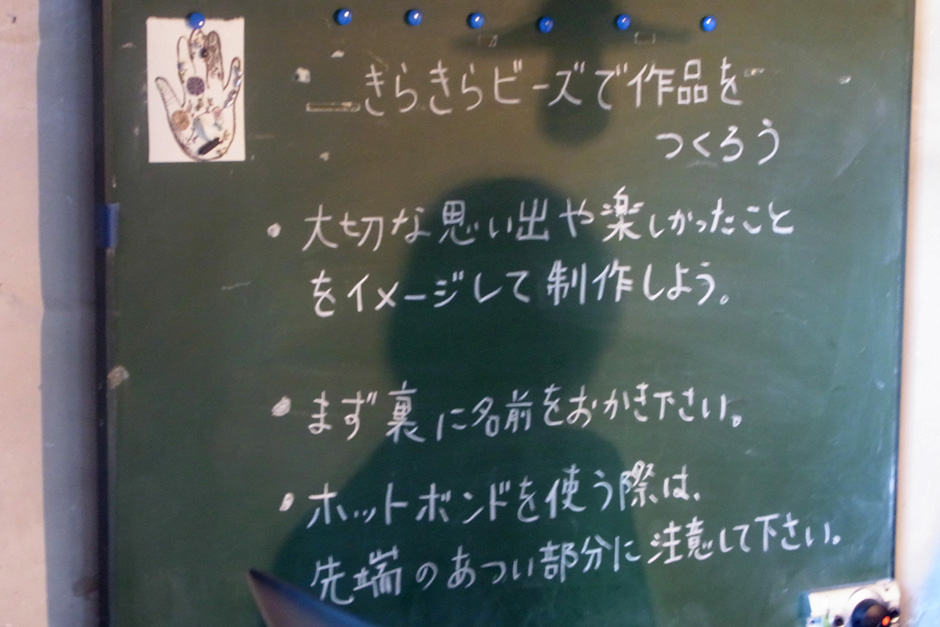 きらきらビーズで作品を
つくろう
・大切な思い出や楽しかったこと
をイメージして制作しよう。
・まず裏に名前をおかき下さい。
・ホットボンドを使う際は、
先端のあつい部分に注意して下さい。